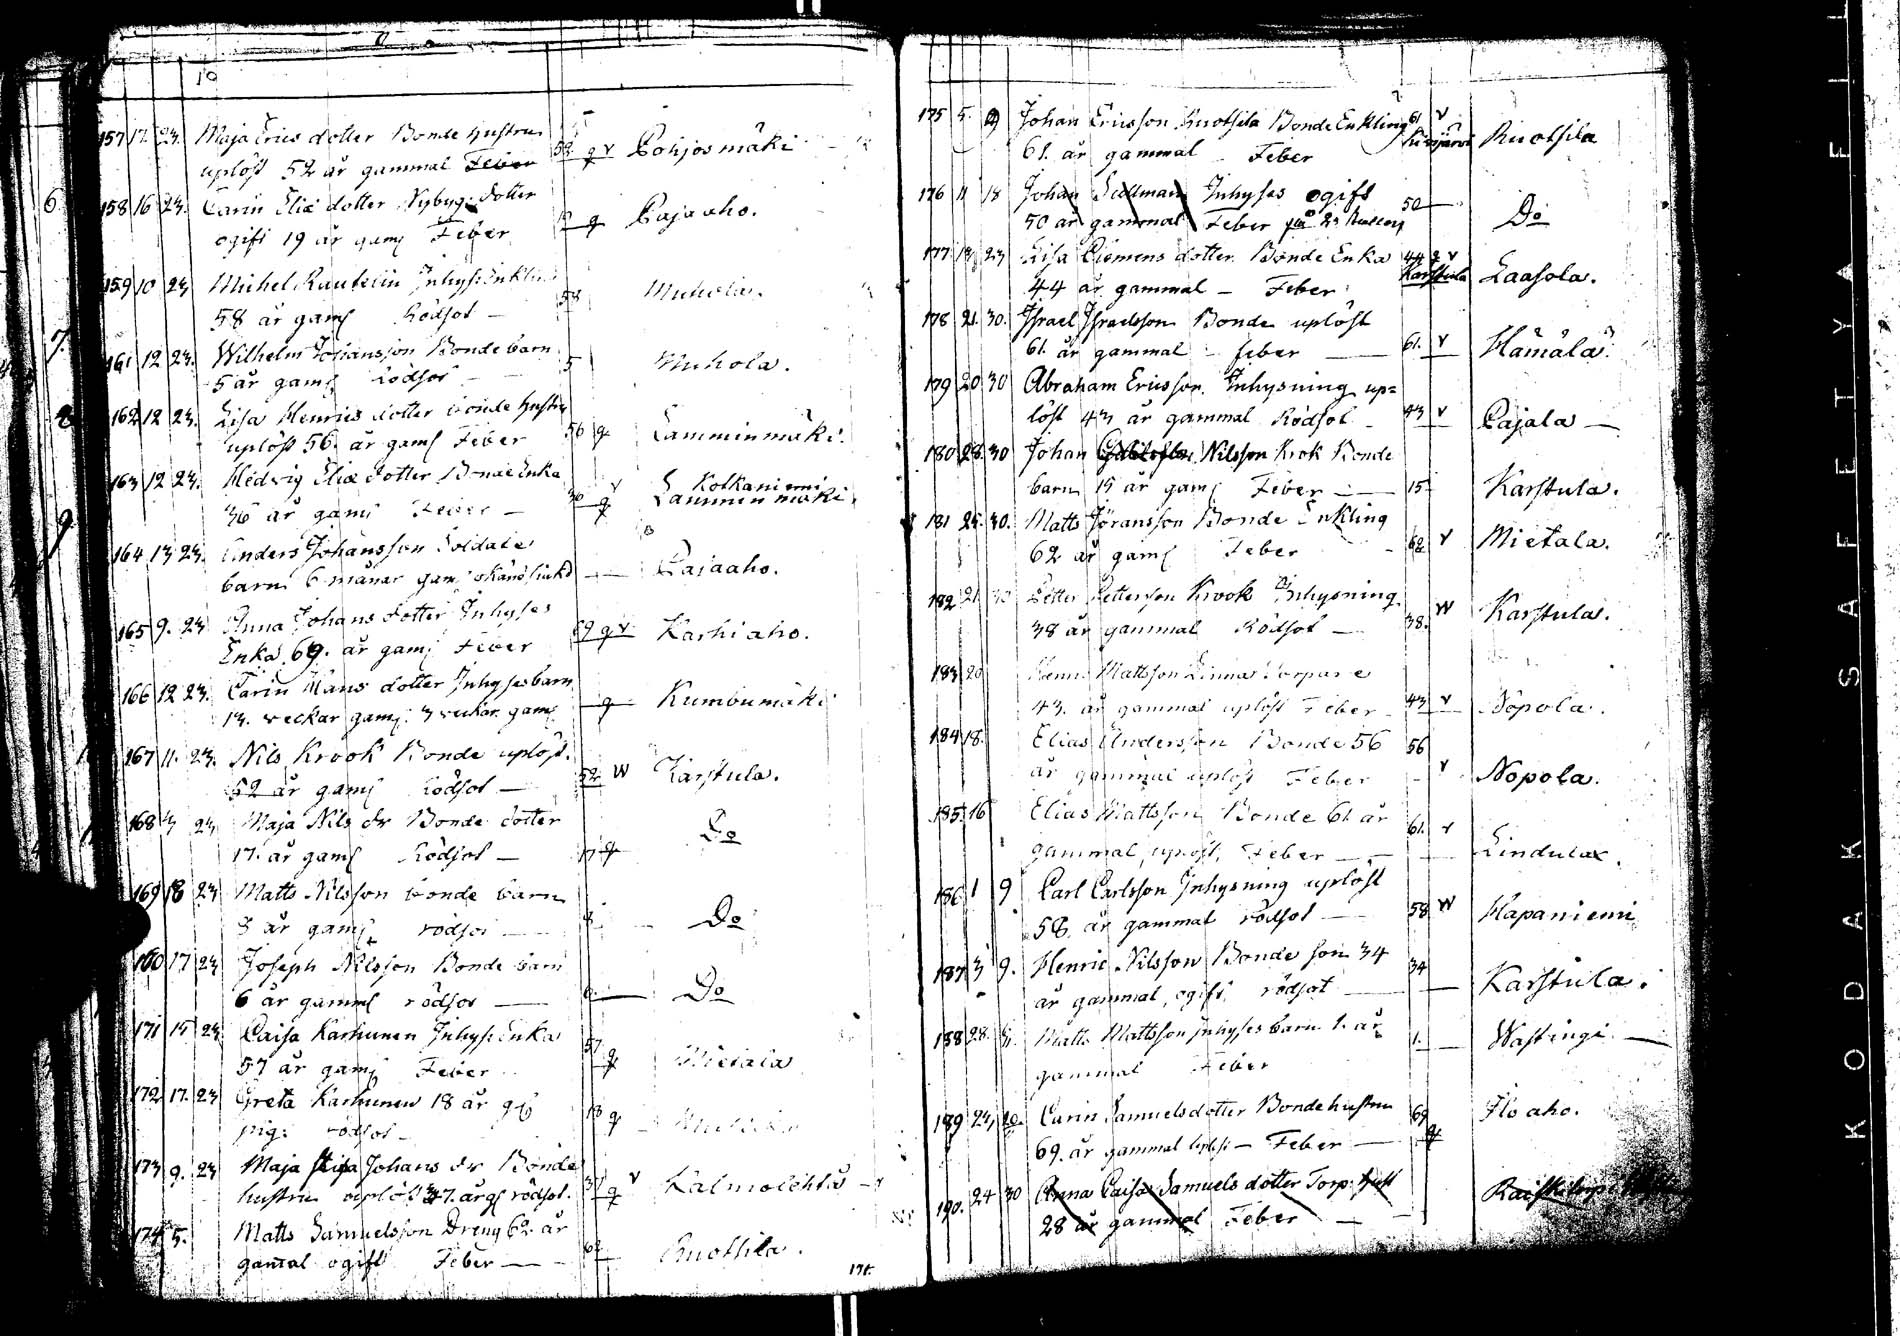 10
157 17. 23. Maja Erics dotter Bonde hustru
uplöst 52 år gammal Feber 52 q v Pohjosmäki
158 16 23. Carin Eliæ dotter Nybyg. dotter
ogift 19 år gam Feber 19 q Pajaaho.
159 10 23 Michel Rautelin Inhyses Enkling
58 år gam Rödsot — 58 Muhola.
161 12 23. Wilhelm Johansson Bonde barn
5 år gam Rödsot 5 Muhola.
162 12 23. Lisa Henrics dotter bonde hustru
uplöst 56. år gam Feber 56 q Lamminmäki.
163 12 23. Hedvig Eliæ dotter Bonde Enka
36 år gam Feber — 36 q v Kolkaniemi
Lamminmäki.
164 13 23. Anders Johansson Soldate
barn 6 månar gam okänd siukd — Pajaaho.
165 9. 23 Anna Johans dotter Inhyses
Enka 69. år gam Feber 69 q v Karhiaho.
166 12 23. Carin Mans dotter Inhyses barn
13. veckar gam. 3 veckar gam q Kumbumäki
167 11. 23. Nils Krook Bonde uplöst.
52 år gam Rödsot — 52 W Karstula.
168 23 Maja Nils dr Bonde dotter
17. år gam Rödsot — 17 q Do
169 18 23 Matts Nilsson bonde barn
8 år gam rödsot — 8 Do
160 17 23 Joseph Nilsson Bonde barn
6 år gamml rödsot — 6. Do
171 15 23 Caisa Karhunen Inhyses Enka
57 år gam Feber 57 q Mietala
172 17. 23 Greta Karhunen 18 år
pig. rödsot 18 q
173 9. 23 Maja Johans dr Bonde
hustru uplöst 37. år g rödsot. 37 q v Kalmolehto
174 5. Matts Samuelsson Dreng 62. år
gamal ogift Feber — 62 Ruotsila.
175 5. 9 Johan Ericsson Ruotsila Bonde Enkling
61. år gammal Feber 61 v Ruotsila
176 11 18 Johan Inhyses ogift
50 år gammal Feber 50 Do
177 18 23 Lisa Clemens dotter Bonde Enka
44 år gammal — Feber 44 q v Karstula Laasola.
178 21. 30. Israel Israelsson Bonde uplöst
61. år gammal feber — 61. v Hämälä.
179 20 30 Abraham Ericsson Inhysning up=
löst 43 år gammal Rödsot 43 v Pajala —
180 28. 30 Johan Nilsson Krok Bonde
barn 15 år gam Feber — 15 Karstula.
181 25. 30. Matts Jöransson Bonde Enkling
62 år gam Feber 62 v Mietala.
182 21. 30 Petter Pettersson Krook Inhysning
38 år gammal Rödsot — 38. W Karstula.
183 20 Mattsson Linna Torpare
43. år gammal uplöst Feber 43 v Nopola.
184 18. Elias Andersson Bonde 56
år gammal uplöst Feber 56 v Nopola.
185. 16 Elias Mattsson Bonde 61. år
gammal, uplöst, Feber — 61. v Lindulax.
186 1 9 Carl Carlsson Inhysning uplöst
58. år gammal rödsot — 58 W Hapaniemi
187 3 9. Henric Nilsson Bonde son 34
år gammal, ogift, rödsot — 34 Karstula.
188 28. Matts Mattsson Inhyses barn 1. år
gammal Feber 1. Wastingi —
189 23 20. Carin Samuels dotter Bonde hustru
69. år gammal uplöst — Feber — 69 q Iloaho.
190. 24 30 Anna Caisa Samuels dotter Torp. hust
28 år gammal Feber —
175.
KODAK SAFETY A FIL